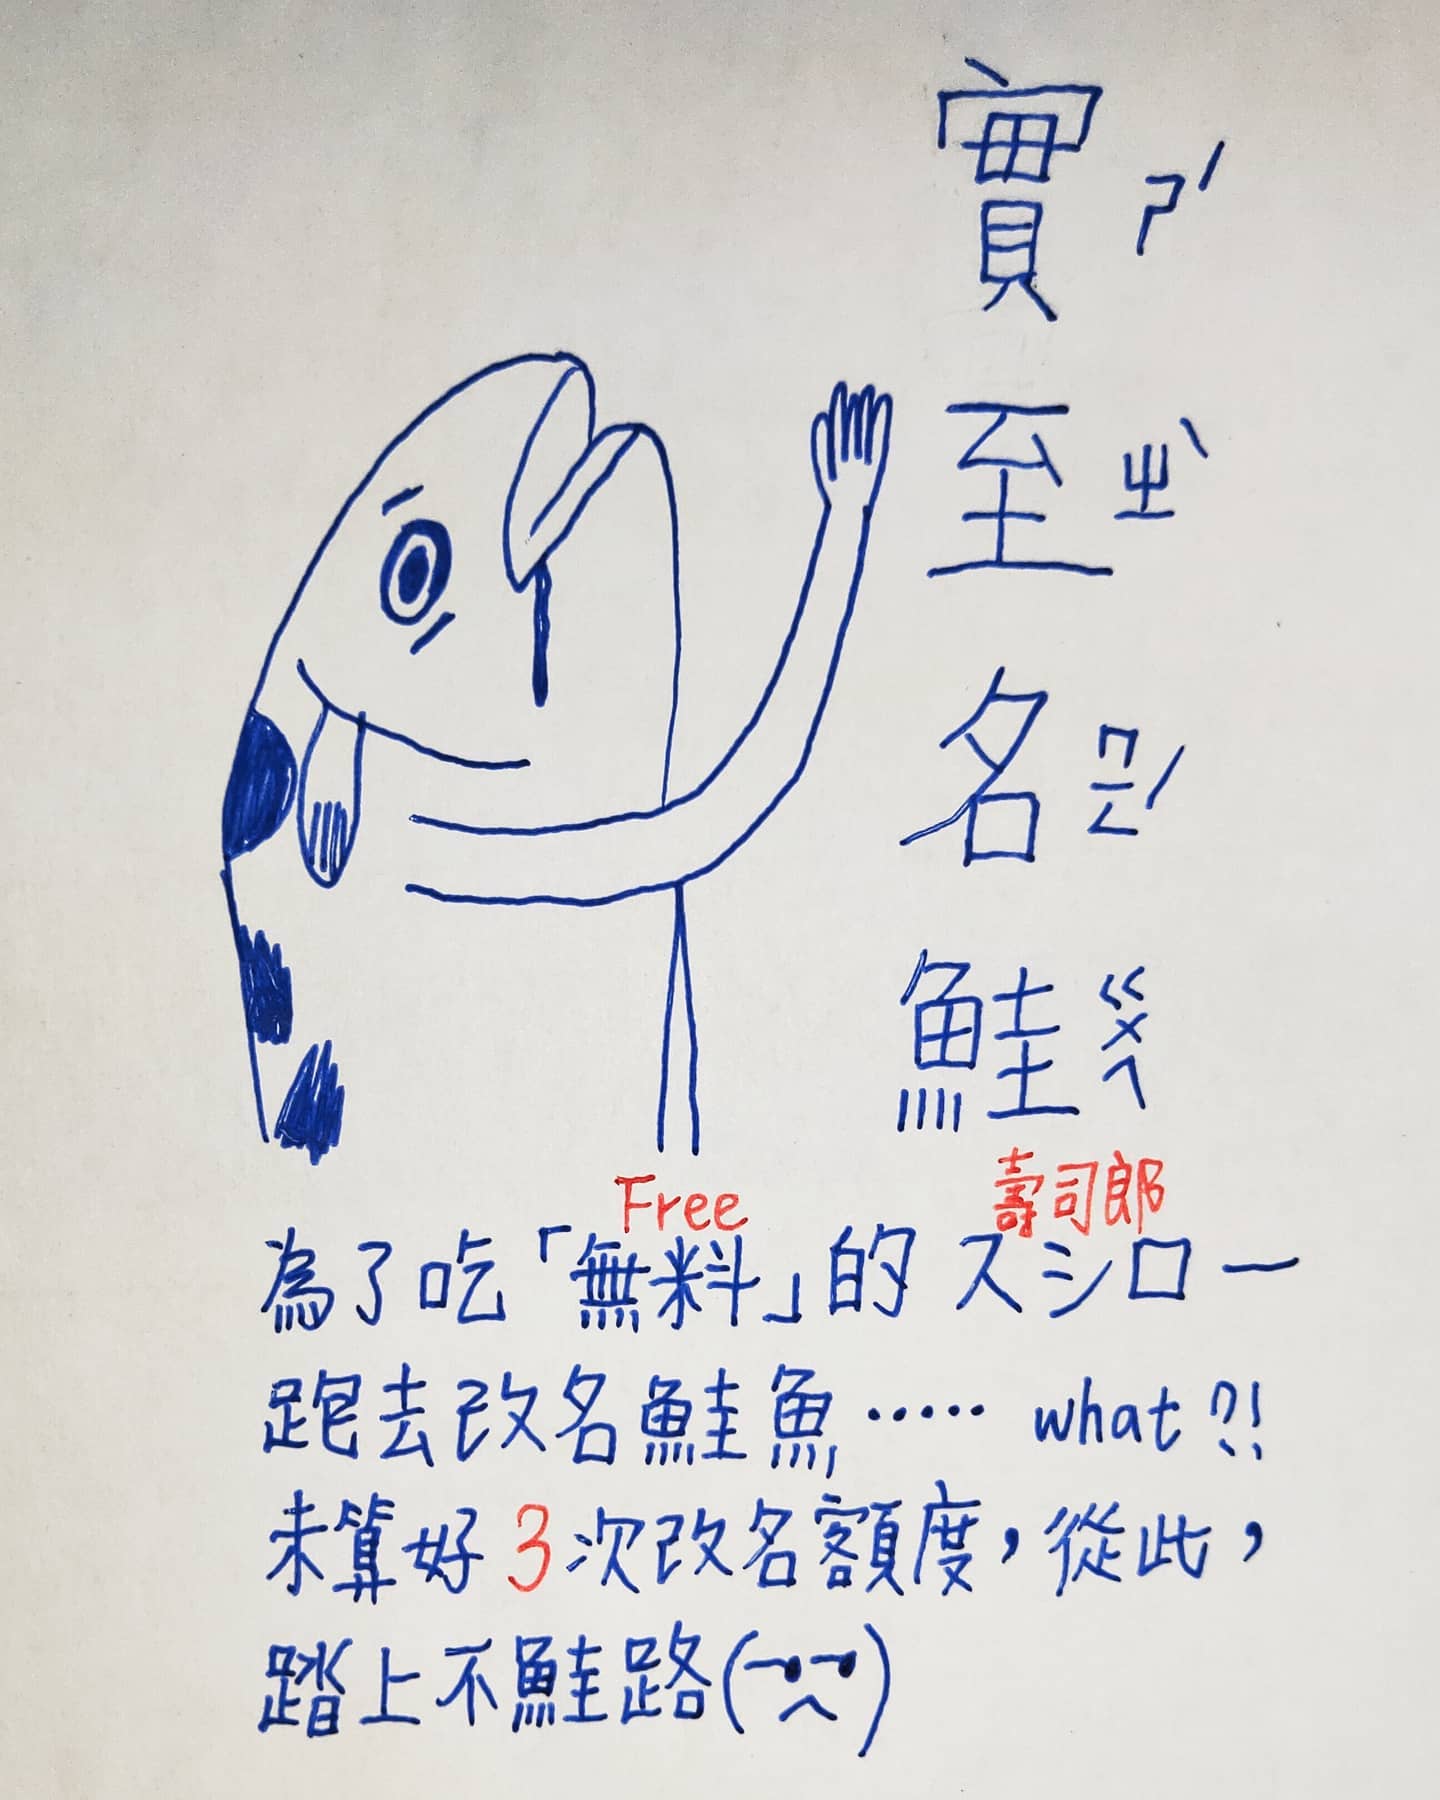 實至名鮭
ㄕˊ ㄓˋ ㄇㄧㄥˊ ㄍㄨㄟ
Free 壽司郎
為了吃「無料」的 スシロー
跑去改名鮭魚‧‧‧‧‧ what?!
未算好3次改名額度，從此，
踏上不鮭路